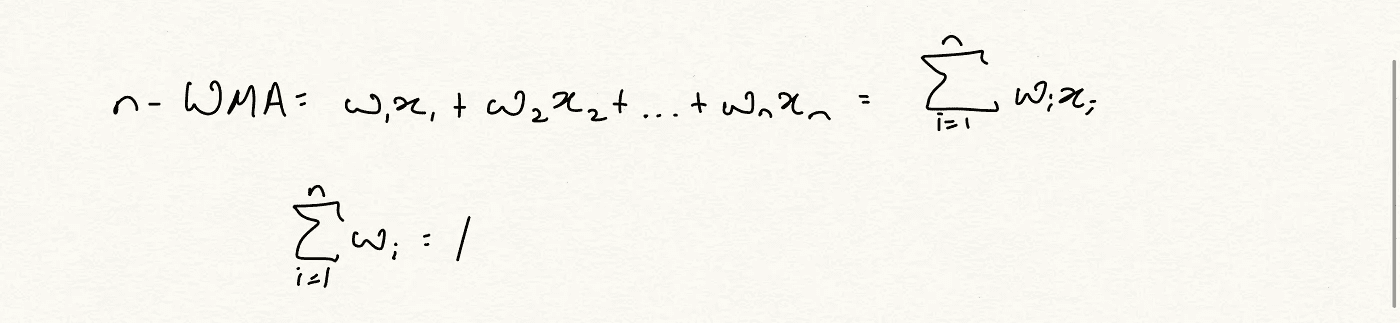 n- WMA = ω₁x₁ + ω₂x₂ + ... + ωₙxₙ = ∑ᵢ₌₁ⁿ ωᵢxᵢ
∑ᵢ₌₁ⁿ ωᵢ = 1